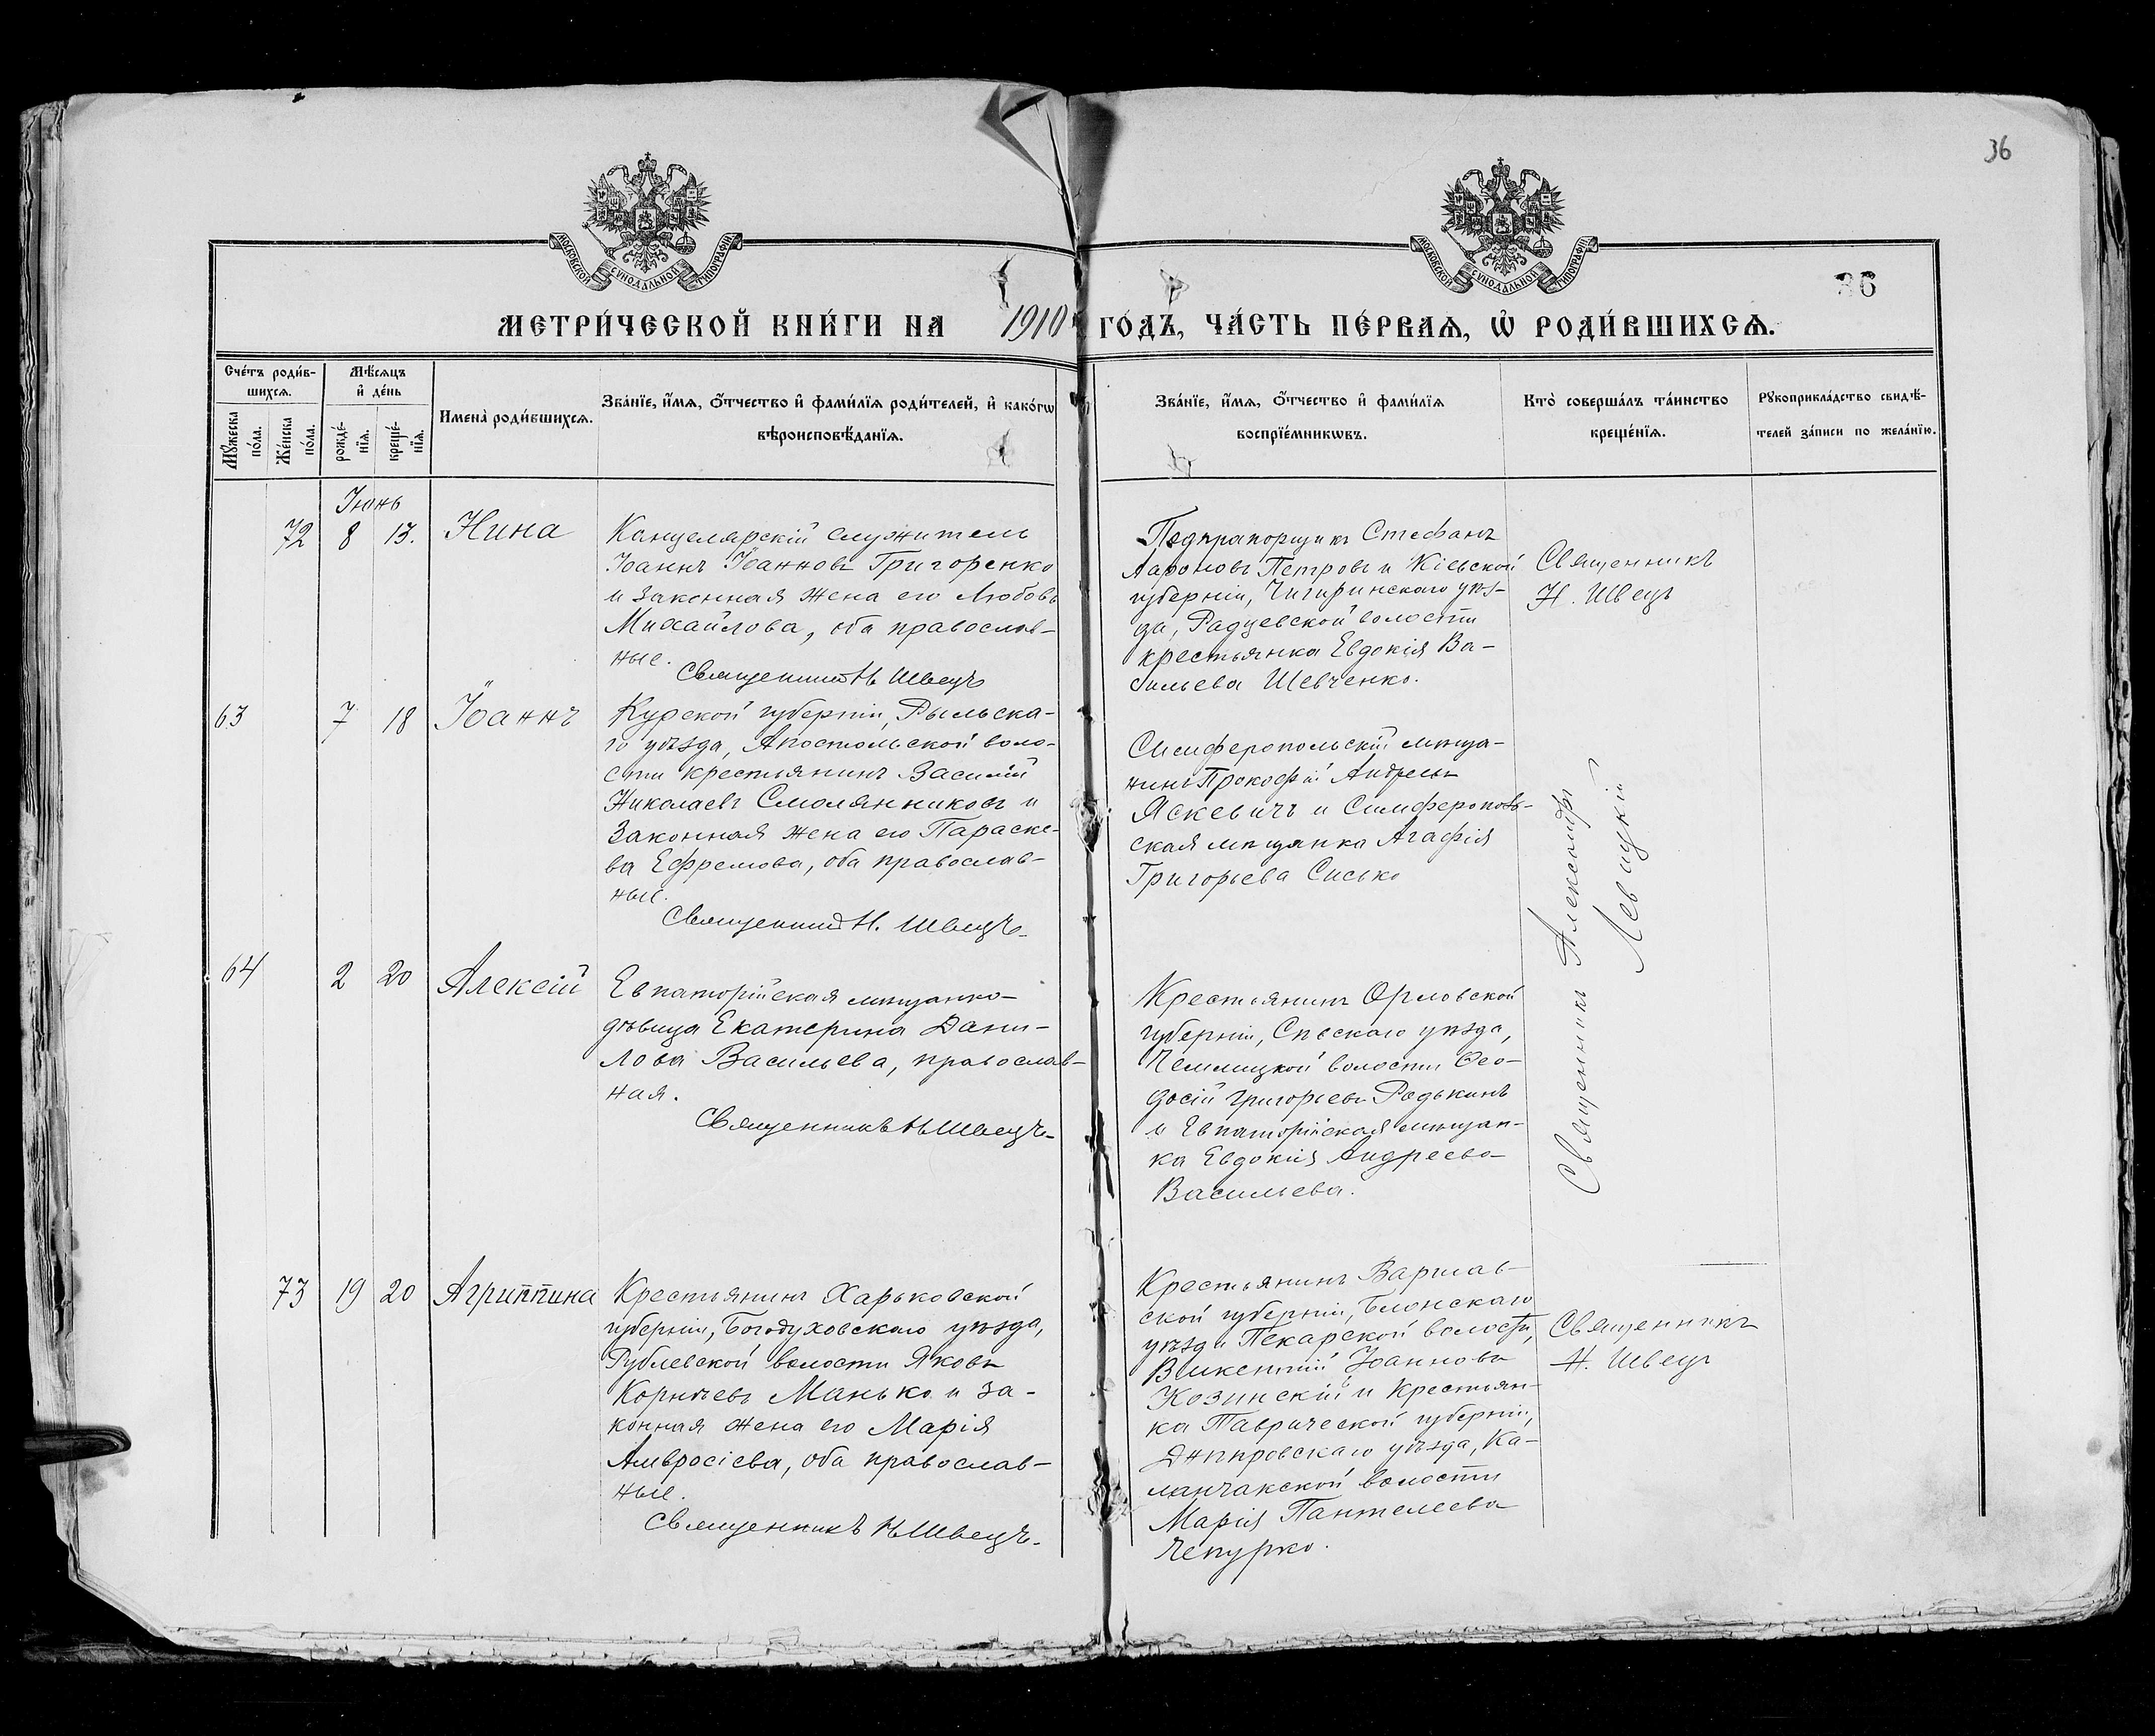 36
МОСКОВСКОЙ СѴНОДАЛЬНОЙ ТИПОГРАФІИ
МОСКОВСКОЙ СѴНОДАЛЬНОЙ ТИПОГРАФІИ
36
МЕТРИ́ЧЕСКОЙ КНИ́ГИ НА 1910 ГО́ДЪ, ЧА́СТЬ ПЕ́РВАѦ, Ѡ҆ РОДИ́ВШИХСѦ.
Сче́тъ роди́в-
шихсѧ.
Мꙋжеска
по́ла.
Же́нска
по́ла.
Мѣ́сѧцъ
и҆ де́нь
рожде́-
нїѧ.
креще́-
нїѧ.
Имена̀ роди́вшихсѧ.
Зва́нїе, и҆́мѧ, ѻ҆́тчество и҆ фами́лїѧ роди́телей, и҆ како́гѡ
вѣроисповѣ́данїѧ.
Зва́нїе, и҆́мѧ, ѻ҆́тчество и҆ фами́лїѧ
воспрїе́мникѡвъ.
Кто̀ соверша́лъ та́инство
креще́нїѧ.
Рꙋкоприкла́дство свидѣ́-
телей за́писи по жела́нїю.
Іюнь
72 8 13. Нина
Канцелярскій служитель
Іоаннъ Іоанновъ Григоренко
и законная жена его Любовь
Михайлова, оба православ-
ные.
Священникъ Н Швецъ
Подпрапорщикъ Стефанъ
Аароновъ Петровъ и Кіевской
губерніи, Чигиринскаго уѣз-
да, Радцевской волости
крестьянка Евдокія Ва-
сильева Шевченко.
Священникъ
Н. Швецъ
63 7 18 Іоаннъ
Курской губерніи, Рыльска-
го уѣзда, Апостольской воло-
сти крестьянинъ Василій
Николаевъ Смолянниковъ и
законная жена его Параске-
ва Ефремова, оба православ-
ные.
Священникъ Н. Швецъ
Симферопольскій мѣща-
нинъ Прокофій Андреевъ
Яскевичъ и Симферополь-
ская мѣщанка Агафія
Григорьева Сисько
Священникъ Александръ
Левицкій
64 2 20 Алексій
Евпаторійская мѣщанка-
дѣвица Екатерина Дани-
лова Васильева, православ-
ная.
Священникъ Н Швецъ
Крестьянинъ Орловской
губерніи, Сѣвскаго уѣзда,
волости Ѳео-
досій Григорьевъ Родькинъ
и Евпаторійская мѣщан-
ка Евдокія Андреева
Васильева.
73 19 20 Агриппина
Крестьянинъ Харьковской
губерніи, Богодуховскаго уѣзда,
Рублевской волости Яковъ
Корнѣевъ Манько и за-
конная жена его Марія
Амвросіева, оба православ-
ные.
Священникъ Н Швецъ.
Крестьянинъ Варшав-
ской губерніи, Блонскаго
уѣзда Пекарской волости,
Викентій Іоанновъ
Козинскій и крестьян-
ка Таврической губерніи,
Днѣпровскаго уѣзда, Ка-
ланчакской волости
Марія Пантелеева
Чепурко.
Священникъ
Н. Швецъ